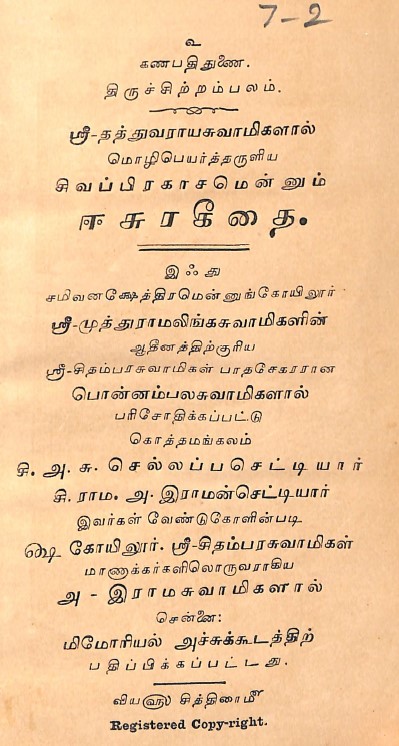 7-2
உ
கணபதிதுணை.
திருச்சிற்றம்பலம்.
ஸ்ரீ-தத்துவராயசுவாமிகளால்
மொழிபெயர்த்தருளிய
சிவப்பிரகாசமென்னும்
ஈசுரகீதை.
இஃது
சமிவனக்ஷேத்திரமென்னுங்கோயிலூர்
ஸ்ரீ-முத்துராமலிங்கசுவாமிகளின்
ஆதீனத்திற்குரிய
ஸ்ரீ-சிதம்பரசுவாமிகள் பாதசேகரரான
பொன்னம்பலசுவாமிகளால்
பரிசோதிக்கப்பட்டு
கொத்தமங்கலம்
சி. அ. சு. செல்லப்பசெட்டியார்
சி. ராம. அ. இராமன்செட்டியார்
இவர்கள் வேண்டுகோளின்படி
ஷை கோயிலூர். ஸ்ரீ-சிதம்பரசுவாமிகள்
மாணாக்கர்களிலொருவராகிய
அ - இராமசுவாமிகளால்
சென்னை:
மிமோரியல் அச்சுக்கூடத்திற்
பதிப்பிக்கப்பட்டது.
வியவரு சித்திரைமீ
Registered Copy-right.